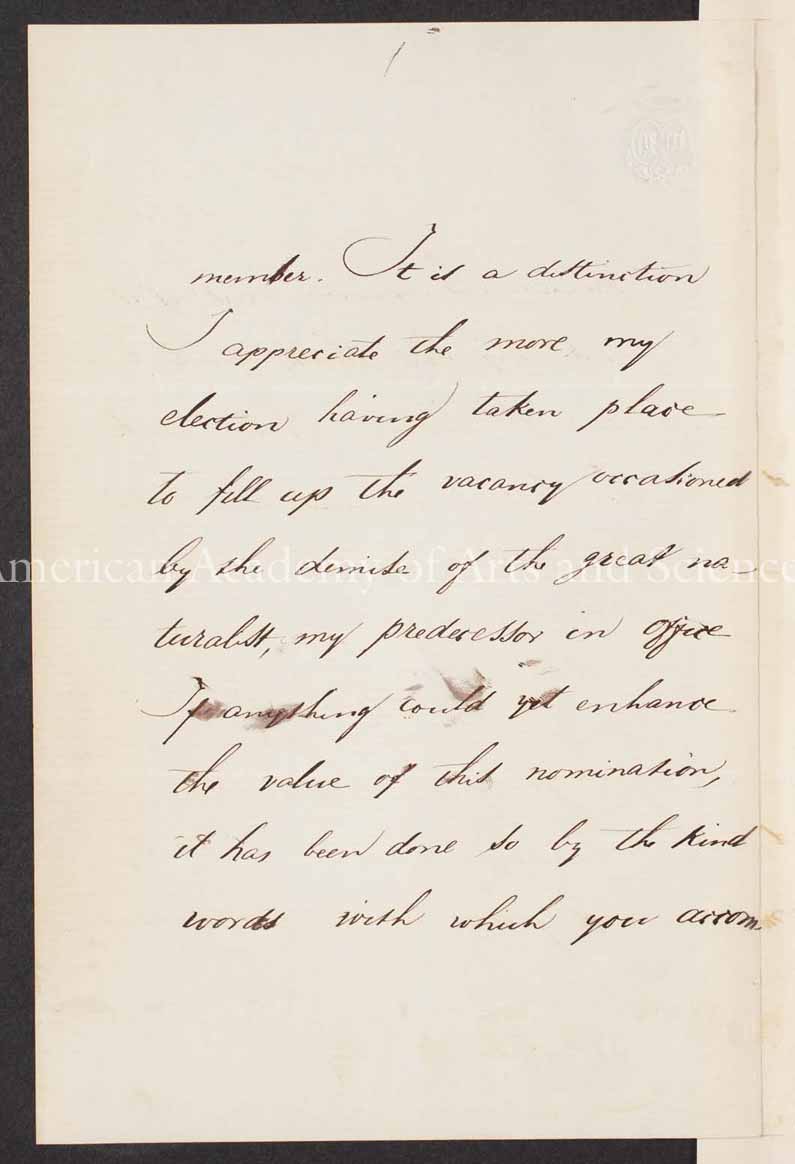 member. It is a distinction
I appreciate the more, my
election having taken place
to fill up the vacancy occasioned
by the demise of the great na-
American Academy of Arts and Science
turalist, my predecessor in office
If anything could yet enhance
the value of this nomination,
it has been done so by the kind
words with which you accom